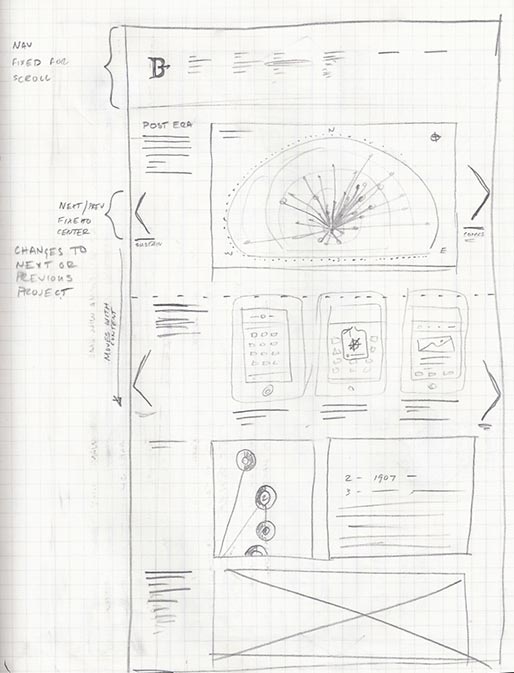 NAV
FIXED FOR
SCROLL
B
POST ERA
N
E
NEXT/PREV
FIXED TO
CENTER
SUSTAIN
CHANGES TO
NEXT OR
PREVIOUS
PROJECT
MOVES WITH
CONTENT
2 - 1907 -
3 -